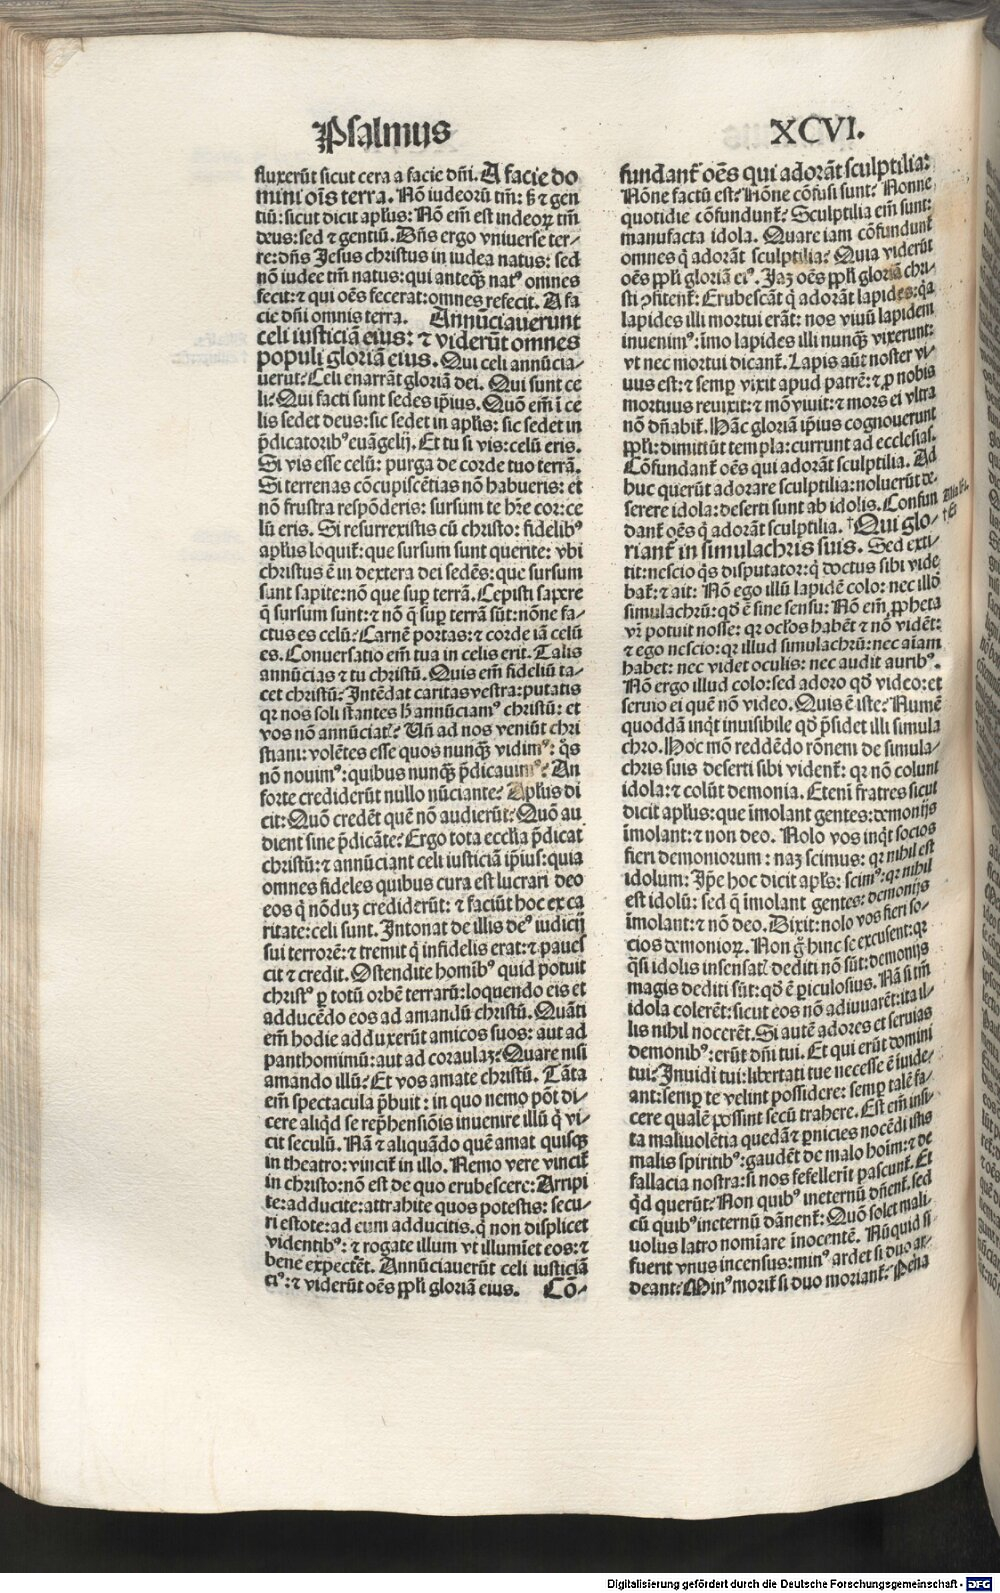 Psalmus
XCVI.
fluxerūt sicut cera a facie dn̄i. A facie do
mini oīs terra. Nō iudeorū tm̄: sꝫ ⁊ gen
tiū: sicut dicit apl̓us: Nō em̄ est iudeoꝝ tm̄
deus: sed ⁊ gentiū. Dn̄s ergo vniuerse ter⸗
re: dn̄s Jesus christus in iudea natus: sed
nō iudee tm̄ natus: qui anteqꝫ̄ natꝰ omnes
fecit: ⁊ qui oēs fecerat: omnes refecit. A fa
cie dn̄i omnis terra. Annūciauerunt
celi iusticiā eius: ⁊ viderūt omnes
populi gloriā eius. Qui celi annūcia⸗
uerūt? Celi enarrāt gloriā dei. Qui sunt ce
li? Qui facti sunt sedes ip̄ius. Quō em̄ ī ce
lis sedet deus: sic sedet in apl̓is: sic sedet in
p̄dicatoribꝰ euāgelij. Et tu si vis: celū eris.
Si vis esse celū: purga de corde tuo terrā.
Si terrenas cōcupiscētias nō habueris: et
nō frustra respōderis: sursum te hr̄e cor: ce
lū eris. Si resurrexistis cū christo: fidelibꝰ
apl̓us loquit̄: que sursum sunt querite: vbi
christus ē in dextera dei sedēs: que sursum
sunt sapite: nō que suꝑ terrā. Cepisti sapere
q̄ sursum sunt: ⁊ nō q̄ suꝑ terrā sūt: nōne fa⸗
ctus es celū? Carnē portas: ⁊ corde iā celū
es. Conuersatio em̄ tua in celis erit. Talis
annūcias ⁊ tu christū. Quis em̄ fideliū ta⸗
cet christū? Intēdat caritas vestra: putatis
qꝛ nos soli stantes h̄ annūciamꝰ christū: et
vos nō annūciatꝭ? Un̄ ad nos veniūt chri
stiani: volētes esse quos nunqꝫ̄ vidimꝰ: q̄s
nō nouimꝰ: quibus nunqꝫ̄ p̄dicauimꝰ? An
forte crediderūt nullo nūciante? Apl̓us di
cit: Quō credēt quē nō audierūt? Quō au
dient sine p̄dicāte? Ergo tota eccl̓ia p̄dicat
christū: ⁊ annūciant celi iusticiā ip̄ius: quia
omnes fideles quibus cura est lucrari deo
eos q̄ nōduꝫ crediderūt: ⁊ faciūt hoc ex ca
ritate: celi sunt. Intonat de illis deꝰ iudicij
sui terrorē: ⁊ tremit q̄ infidelis erat: ⁊ paues
cit ⁊ credit. Ostendite homībꝰ quid potuit
christꝰ ꝑ totū orbē terrarū: loquendo eis et
adducēdo eos ad amandū christū. Quāti
em̄ hodie adduxerūt amicos suos: aut ad
panthomimū: aut ad coraulaꝫ? Quare nisi
amando illū? Et vos amate christū. Tāta
em̄ spectacula p̄buit: in quo nemo pōt di⸗
cere aliqd̓ se rep̄hensiōis inuenire illū q̄ vi⸗
cit seculū. Nā ⁊ aliquādo quē amat quisqꝫ
in theatro: vincit̄ in illo. Nemo vere vincit̄
in christo: nō est de quo erubescere: Arripi
te: adducite: attrahite quos potestis: secu⸗
ri estote: ad eum adducitis. q̄ non displicet
videntibꝰ: ⁊ rogate illum vt illumīet eos: ⁊
bene expectēt. Annūciauerūt celi iusticiā
eiꝰ: ⁊ viderūt oēs ppl̓i gloriā eius. Cō⸗
fundant̄ oēs qui adorāt sculptilia:
Nōne factū est? Nōne cōfusi sunt? Nonne
quotidie cōfundunt̄? Sculptilia em̄ sunt:
manufacta idola. Quare iam cōfundunt̄
omnes q̄ adorāt sculptilia? Quia viderūt
oēs ppl̓i gloriā eiꝰ. Jaꝫ oēs ppl̓i gloriā chri⸗
sti ꝯfitent̄: Erubescāt q̄ adorāt lapides: qꝛ
lapides illi mortui erāt: nos viuū lapidem
inuenimꝰ: imo lapides illi nunqꝫ̄ vixerunt:
vt nec mortui dicant̄. Lapis aūt noster vi⸗
uus est: ⁊ semꝑ vixit apud patrē: ⁊ ꝓ nobis
mortuus reuixit: ⁊ mō viuit: ⁊ mors ei vltra
nō dn̄abit̄. Hāc gloriā ip̄ius cognouerunt
ppl̓i: dimittūt templa: currunt ad ecclesias.
Cōfundant̄ oēs qui adorāt sculptilia. Ad
huc querūt adorare sculptilia: noluerūt de⸗
serere idola: deserti sunt ab idolis. Confun
dant̄ oēs q̄ adorāt sculptilia. †Qui glo⸗
riant̄ in simulachris suis. Sed exti⸗
tit: nescio q̄s disputator: q̄ doctus sibi vide
bat̄: ⁊ ait: Nō ego illū lapidē colo: nec illd̓
simulachrū: qd̓ ē sine sensu: Nō em̄ ꝓpheta
vr̄ potuit nosse: qꝛ ocl̓os habēt ⁊ nō vidēt:
⁊ ego nescio: qꝛ illud simulachrū: nec aīam
habet: nec videt oculis: nec audit auribꝰ.
Nō ergo illud colo: sed adoro qd̓ video: et
seruio ei quē nō video. Quis ē iste? Numē
quoddā inqͥt inuisibile qd̓ p̄sidet illi simula
chro. Hoc mō reddēdo rōnem de simula⸗
chris suis deserti sibi vident̄: qꝛ nō colunt
idola: ⁊ colūt demonia. Eteni fratres sicut
dicit apl̓us: que īmolant gentes: demonijs
īmolant: ⁊ non deo. Nolo vos inqͥt socios
fieri demoniorum: naꝫ scimus: qꝛ nihil est
idolum: Ip̄e hoc dicit apl̓s: scimꝰ: qꝛ nihil
est idolū: sed q̄ īmolant gentes: demonijs
īmolant: ⁊ nō deo. Dixit: nolo vos fieri so⸗
cios demonioꝝ. Non g̊ hinc se excusent: qꝛ
qͣsi idolis insensatꝭ dediti nō sūt: demonijs
magis dediti sūt: qd̓ ē ꝑiculosius. Nā si tm̄
idola colerēt: sicut eos nō adiuuarēt: ita il⸗
lis nihil nocerēt. Si autē adores et seruias
demonibꝰ: erūt dn̄i tui. Et qui erūt domini
tui? Inuidi tui: libertati tue necesse ē īuide⸗
ant: semꝑ te velint possidere: semꝑ talē fa⸗
cere qualē possint secū trahere. Est em̄ insi⸗
ta maliuolētia quedā ⁊ ꝑnicies nocēdi istis
malis spiritibꝰ: gaudēt de malo hoīm: ⁊ de
fallacia nostra: si nos fefellerīt pascunt̄. Et
qͥd querūt? Non quibꝰ ineternū dn̄ent̄. sed
cū quibꝰ ineternū dānent̄: Quō solet mali⸗
uolus latro nomīare īnocentē. Nūquid si
fuerit vnus incensus: minꝰ ardet si duo ar⸗
deant? Minꝰ morit̄ si duo moriant̄? Pena